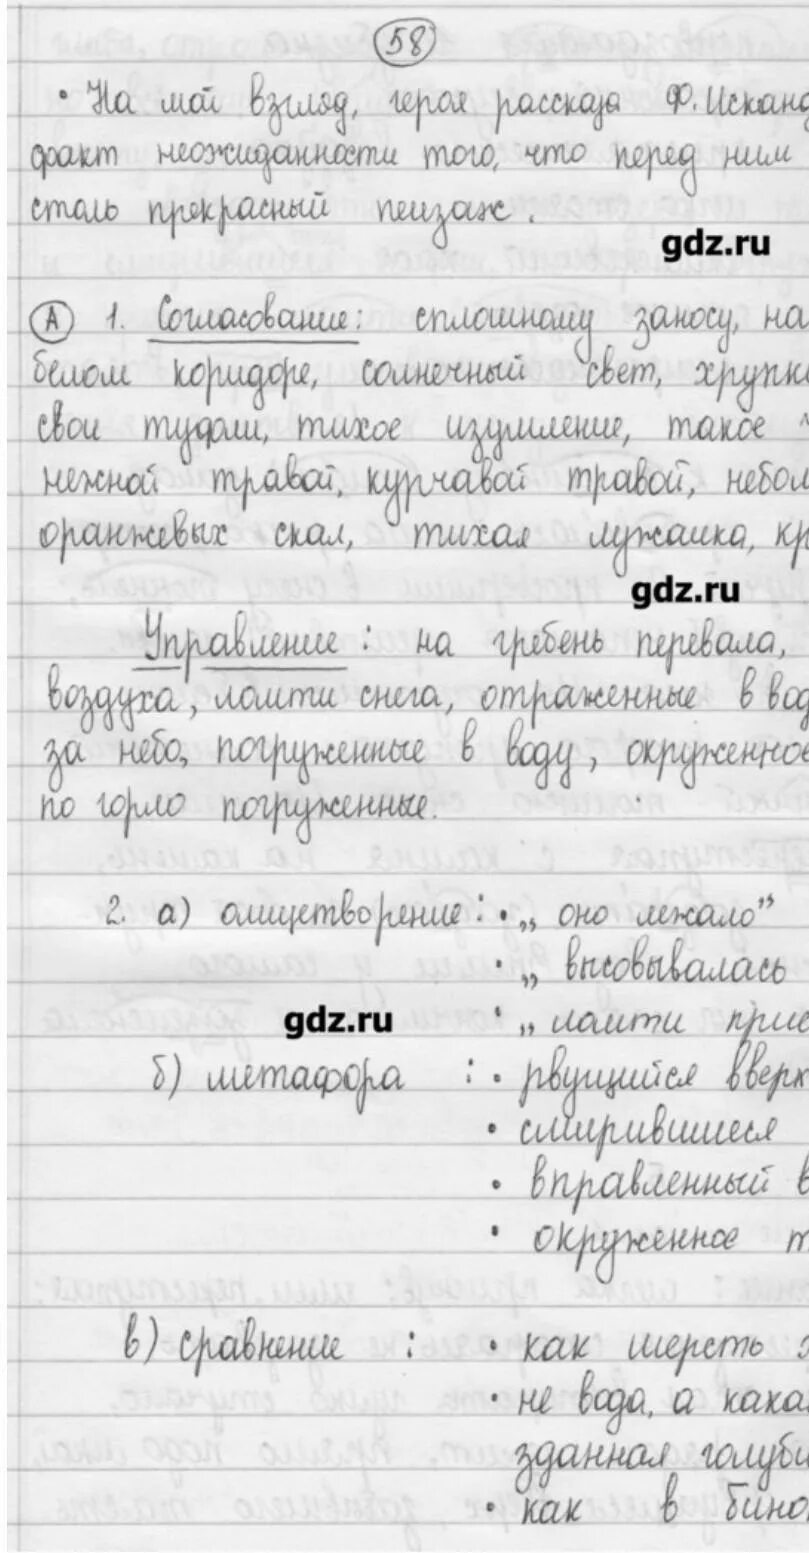 58
• На мой взгляд, героя рассказа Ф. Исканд
факт неожиданности того, что перед ним
столь прекрасный пейзаж.
gdz.ru
А 1. Согласование: сплошному заносу, на
белом коридоре, солнечный свет, хрупк
свои туфли, тихое изумление, такое
нежной травой, курчавой травой, небол
оранжевых скал, тихая лужайка, кр
gdz.ru
Управление: на гребень перевала,
воздуха, ломти снега, отраженные в вод
за небо, погруженные в воду, окруженное
по горло погруженные.
2. а) олицетворение: • „ оно лежало”
• „ высовывалась
gdz.ru
• „ ломти прис
б) метафора : • рвущийся вверх
• смирившиеся
• вправленный в
• окруженное т
в) сравнение : • как шерсть
• не вода, а какая
зданная голуби
• как в бинок